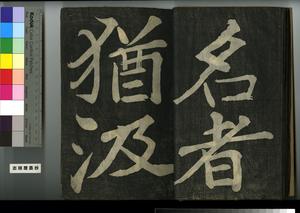 名者
猶汲